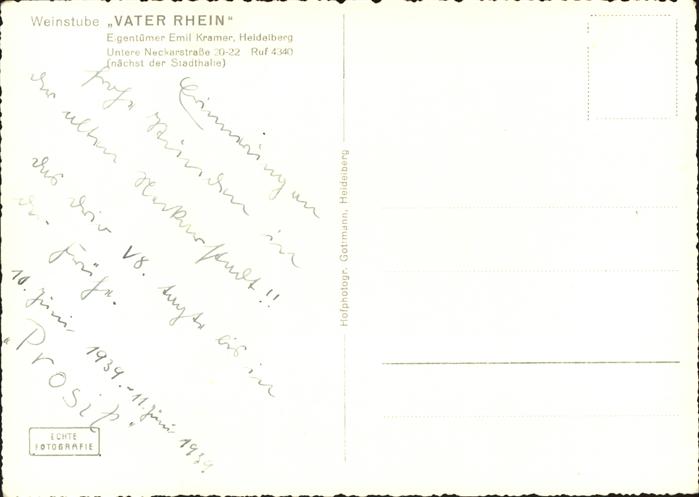 Weinstube „VATER RHEIN"
Eigentümer Emil Kramer, Heidelberg
Untere Neckarstraße 20-22 Ruf 4340
(nächst der Stadthalle)
Erinnerung an
frohe Stunden in
der alten Neckarstadt!!
V8. tagte bis in
die Frühe.
10. Juni 1939.-11. Juni 1939
„PROSIT"
Hofphotogr. Gottmann, Heidelberg
ECHTE
FOTOGRAFIE